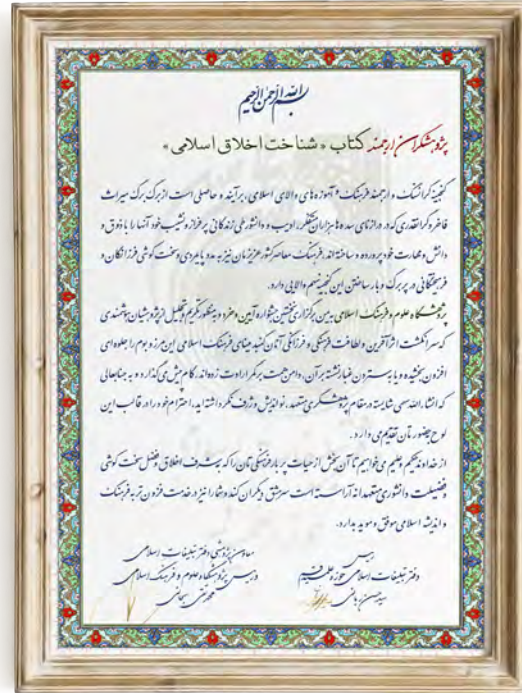 بسم الله الرحمن الرحیم
پژوهشگران ارجمند کتاب «شناخت اخلاق اسلامی»
گنجینه گرانسنگ و ارجمند فرهنگ و آموزه‌های والای اسلامی، برآیند و حاصلی است از برگ برگ میراث
فاخر و گرانقدری که در درازنای سده‌ها هزاران متفکر، ادیب و دانشور طی زندگانی پرفراز و نشیب خود آنها را با ذوق و
دانش و مهارت خود پرورده و ساخته‌اند. فرهنگ معاصر کشور عزیزمان نیز به مدد پایمردی و سخت کوشی فرزانگان و
فرهیختگانی در پربرگ و بار ساختن این گنجینه سهم والایی دارد.
پژوهشگاه علوم و فرهنگ اسلامی به یمن برگزاری نخستین جشنواره آیین و خرد و به منظور تکریم و تجلیل از پژوهشیان هوشمندی
که سرانگشت اثرآفرین و لطافت فرهنگی و فرزانگی آنان گنبد مینای فرهنگ اسلامی این مرز و بوم را جلوه‌ای
افزون بخشیده و یا به ستردن غبار نشسته بر آن، دامن همت بر کمر ارادت زده‌اند، گام پیش می‌گذارد و به جنابعالی
که انشاءالله سعی شایسته در مقام پژوهشگری متعهد، نواندیش و ژرف نگر داشته‌اید، احترام خود را در قالب این
لوح حضورتان تقدیم می‌دارد.
از خداوند حکیم و علیم می‌خواهیم تا آن بخش از حیات پربار فرهنگی‌تان را که به شرف اخلاق و فضل سخت کوشی
و فضیلت دانشوری متعهدانه آراسته است سرمشق دیگران کند و شما را نیز در خدمت فزون‌تر به فرهنگ
و اندیشه اسلامی موفق و موید بدارد.
رییس
دفتر تبلیغات اسلامی حوزه علمیه قم
سید حسن ربانی
معاون پژوهشی دفتر تبلیغات اسلامی
و رییس پژوهشگاه علوم و فرهنگ اسلامی
محمد تقی سبحانی